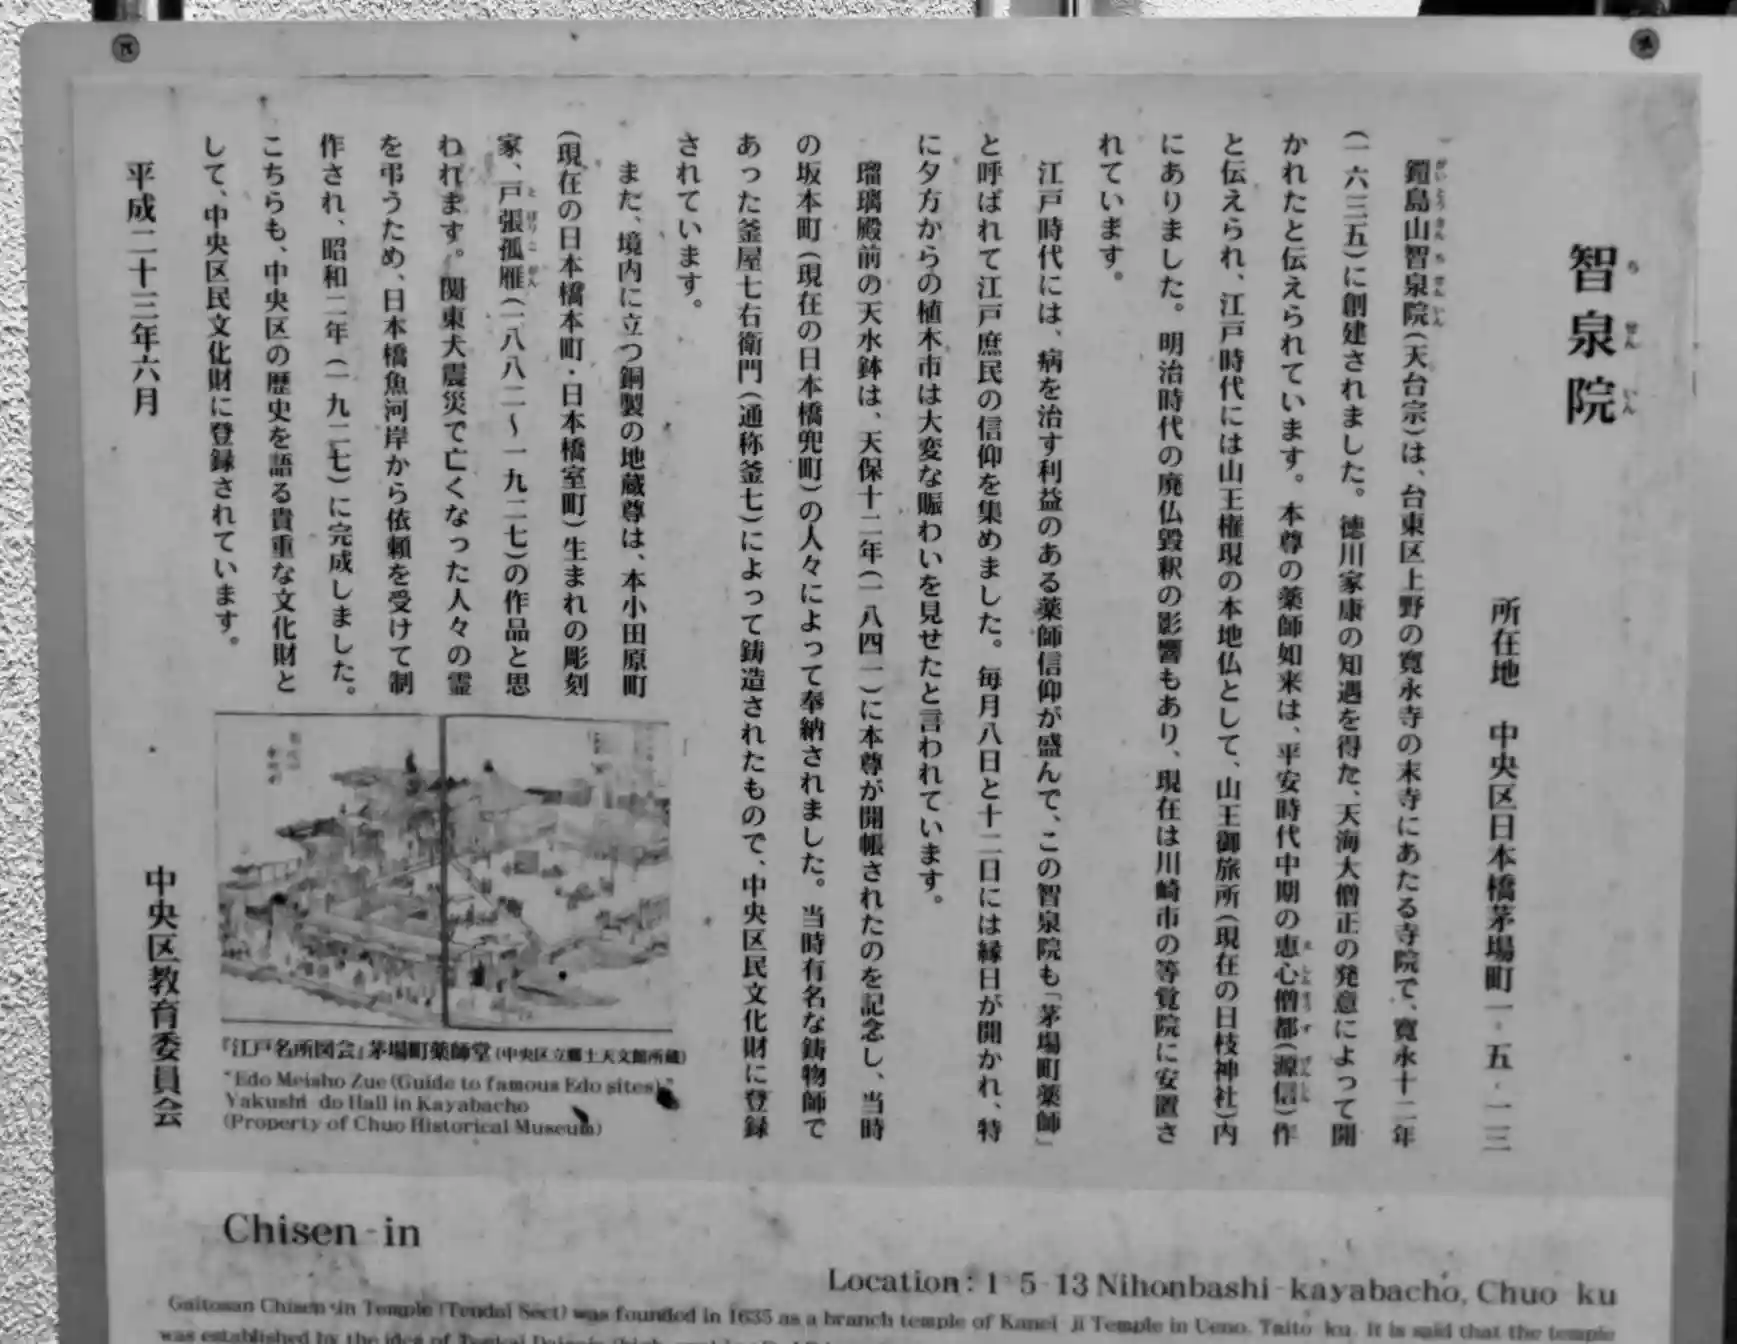 智泉院
所在地 中央区日本橋茅場町一-五-一三
鎧島山智泉院(天台宗)は、台東区上野の寛永寺の末寺にあたる寺院で、寛永十二年
(一六三五)に創建されました。徳川家康の知遇を得た、天海大僧正の発意によって開
かれたと伝えられています。本尊の薬師如来は、平安時代中期の恵心僧都(源信)作
と伝えられ、江戸時代には山王権現の本地仏として、山王御旅所(現在の日枝神社)内
にありました。明治時代の廃仏毀釈の影響もあり、現在は川崎市の等覚院に安置さ
れています。
江戸時代には、病を治す利益のある薬師信仰が盛んで、この智泉院も「茅場町薬師」
と呼ばれて江戸庶民の信仰を集めました。毎月八日と十二日には縁日が開かれ、特
に夕方からの植木市は大変な賑わいを見せたと言われています。
瑠璃殿前の天水鉢は、天保十二年(一八四一)に本尊が開帳されたのを記念し、当時
の坂本町(現在の日本橋兜町)の人々によって奉納されました。当時有名な鋳物師で
あった釜屋七右衛門(通称釜七)によって鋳造されたもので、中央区民文化財に登録
されています。
また、境内に立つ銅製の地蔵尊は、本小田原町
(現在の日本橋本町・日本橋室町)生まれの彫刻
家、戸張孤雁(一八八二〜一九二七)の作品と思
われます。関東大震災で亡くなった人々の霊
を弔うため、日本橋魚河岸から依頼を受けて制
作され、昭和二年(一九二七)に完成しました。
こちらも、中央区の歴史を語る貴重な文化財と
して、中央区民文化財に登録されています。
平成二十三年六月
中央区教育委員会
『江戸名所図会』茅場町薬師堂(中央区立郷土天文館所蔵)
"Edo Meisho Zue (Guide to famous Edo sites)"
Yakushi-do Hall in Kayabacho
(Property of Chuo Historical Museum)
Chisen-in
Location: 1-5-13 Nihonbashi-kayabacho, Chuo-ku
Gaitosan Chisen-in Temple (Tendai Sect) was founded in 1635 as a branch temple of Kanei-ji Temple in Ueno, Taito-ku. It is said that the temple
was established by the idea of